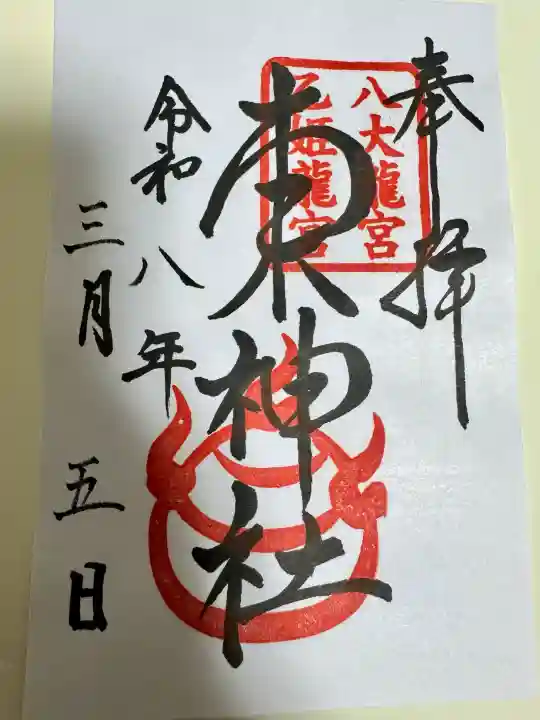 奉拝
八大龍宮
乙姫龍宮
東神社
令和八年
三月五日